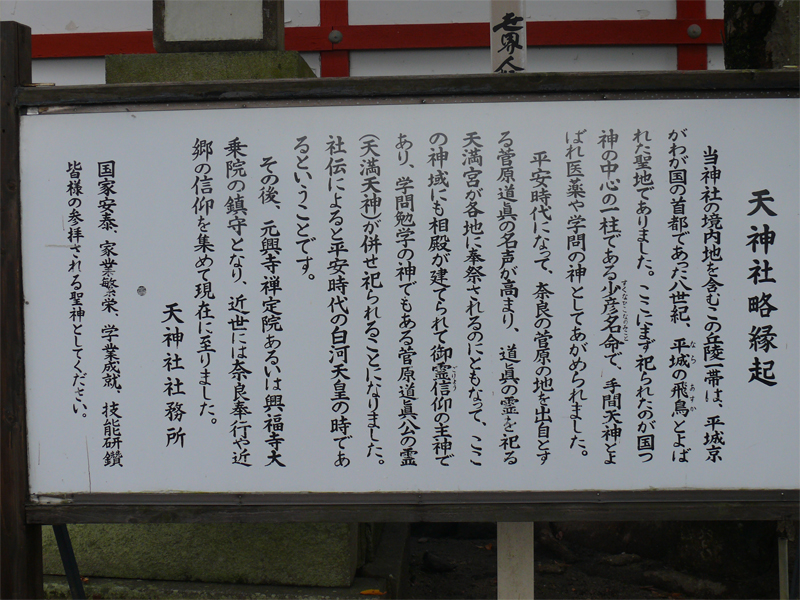 天神社略縁起
当神社の境内地を含むこの丘陵一帯は、平城京
がわが国の首都であった八世紀、平城の飛鳥とよば
なら
あすか
れた聖地でありました。ここにまず祀られたのが国つ
神の中心の一柱である少彦名命で、手間天神とよ
すくなひこなのみこと
ばれ医薬や学問の神としてあがめられました。
平安時代になって、奈良の菅原の地を出自とす
る菅原道真の名声が高まり、道真の霊を祀る
天満宮が各地に奉祭されるのにともなって、ここ
の神域にも相殿が建てられて御霊信仰の主神で
ごりょう
あり、学問勉学の神でもある菅原道真公の霊
(天満天神)が併せ祀られることになりました。
社伝によると平安時代の白河天皇の時であ
るということです。
その後、元興寺禅定院あるいは興福寺大
乗院の鎮守となり、近世には奈良奉行や近
郷の信仰を集めて現在に至りました。
天神社社務所
国家安泰、家業繁栄、学業成就、技能研鑽
皆様の参拝される聖神としてください。